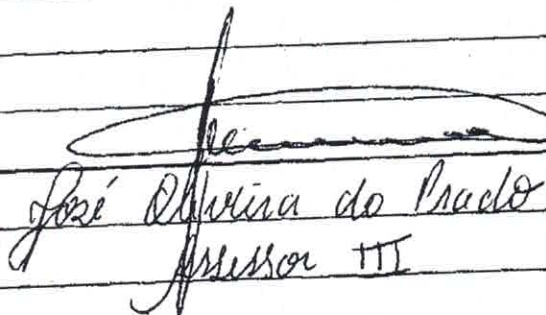 José Oliveira do Prado
Assessor III